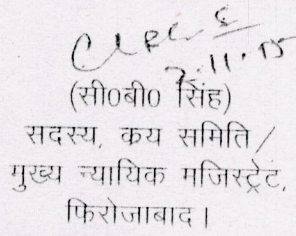 7.11.15
(सी0बी0 सिंह)
सदस्य, कय समिति/
मुख्य न्यायिक मजिस्ट्रेट,
फिरोजाबाद।